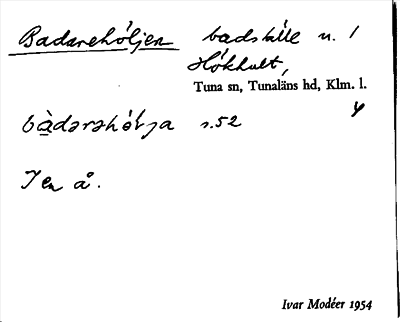 Badarehöljen badställe n. 1
Hökhult,
Tuna sn, Tunaläns hd, Klm. l.
s. 52
I en å.
Ivar Modéer 1954